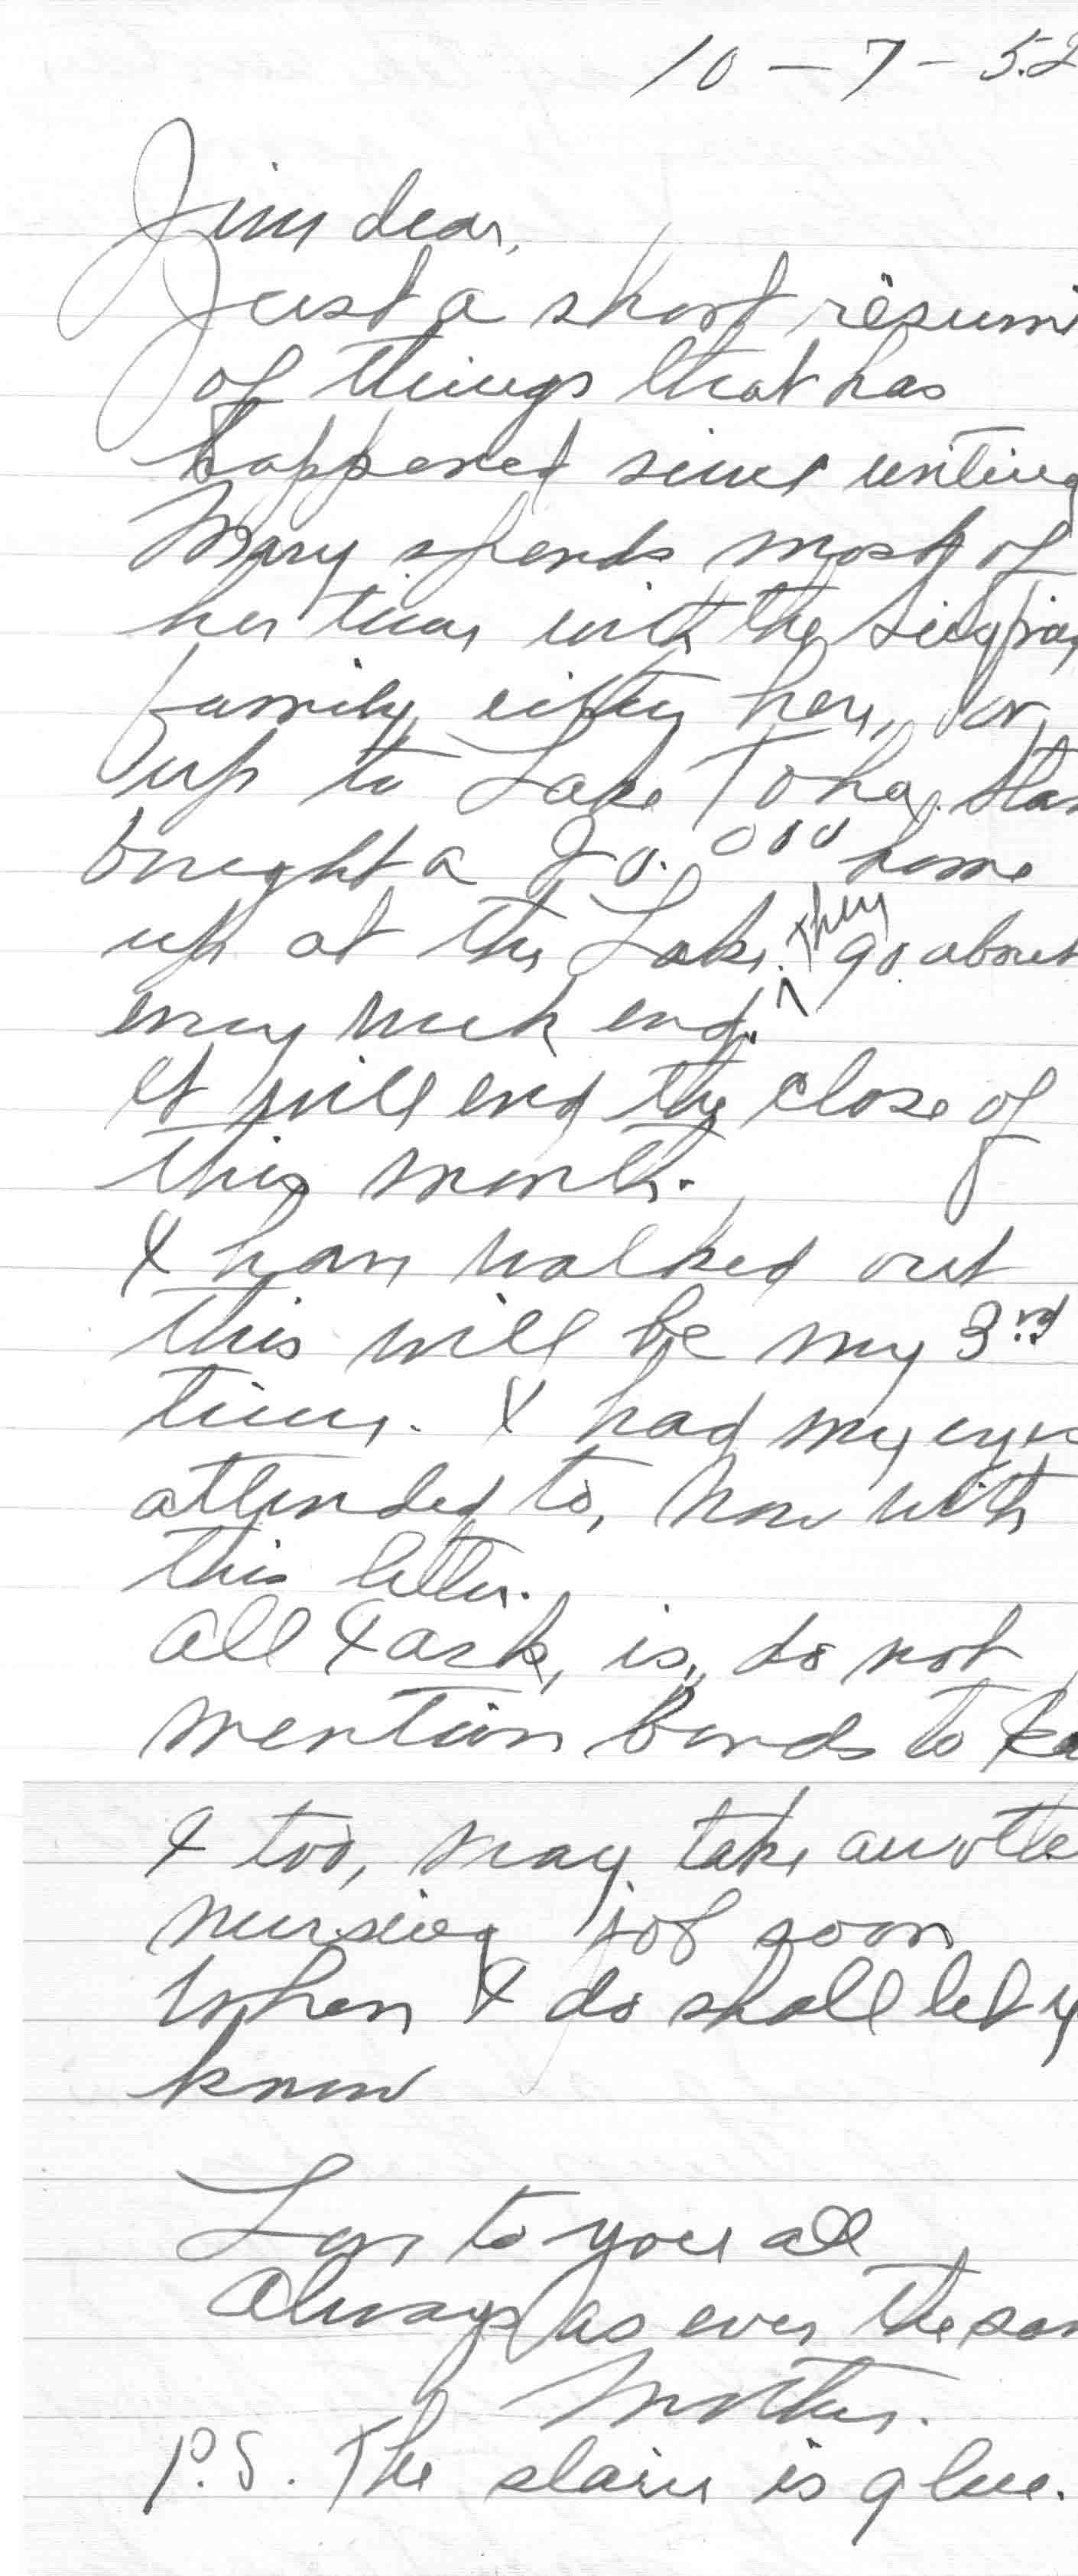 10-7-52
Jim dear,
Just a short résumé
of things that has
happened since writing
Mary spends most of
her time with the
family, either here, or
up to Lake Toho. Stan
bought a 20.000 home
up at the Lake. They go about
every week end.
It will end the close of
this month.
I have walked out
this will be my 3rd
time. I had my eyes
attended to, now with
this letter.
All I ask, is, do not
mention bonds to
I too, may take anothe
nursing job soon
When I do shall let y
know
Love to you all
Always as ever the sam
Mother.
P.S. The stain is glue.